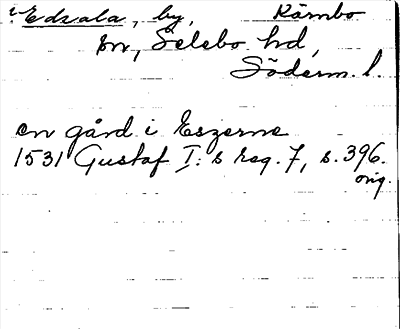 Edsala, by, Kärnbo
sn, Selebo hd,
Söderm. l.
en gård i Eszerne
1531 Gustaf I:s reg. 7, s. 396.
orig.